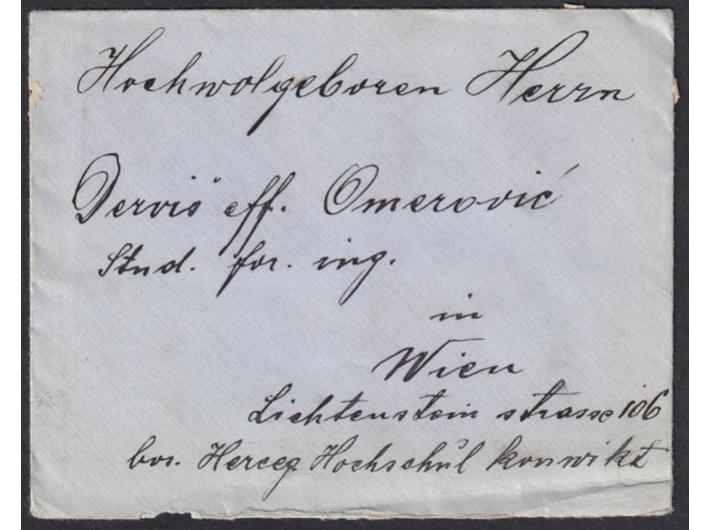 Hochwolgeboren Herrn
Derviš eff. Omerović
Stud. for. ing.
in
Wien
Lichtenstein strasse 106
bos. Herceg Hochschŭl konwikt